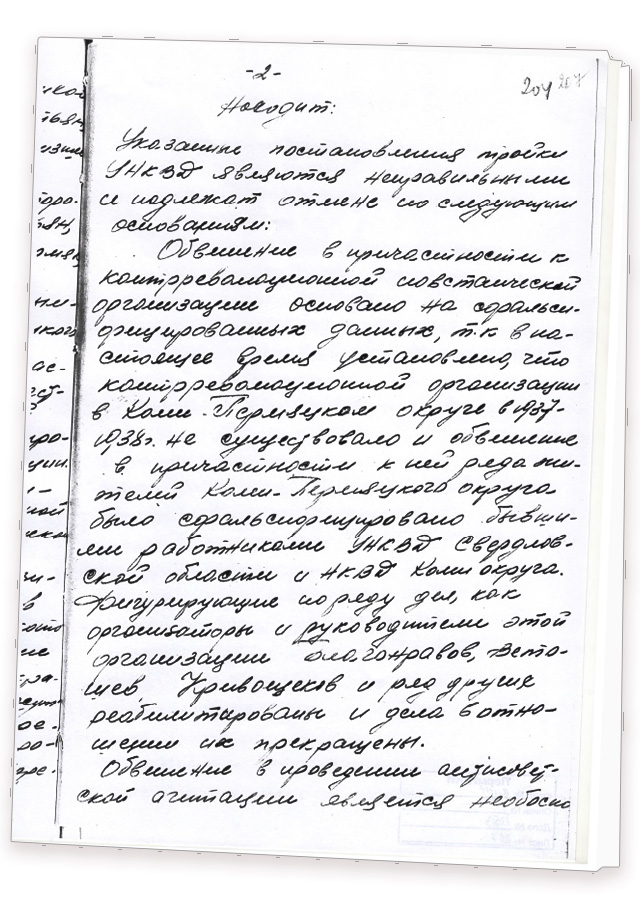 -2-
204 207
Находит:
Указанные постановления тройки
УНКВД являются неправильными
и подлежат отмене по следующим
основаниям:
Обвинение в причастности к
контрреволюционной повстанческой
организации основано на сфальси-
фицированных данных, т.к в на-
стоящее время установлено, что
контрреволюционной организации
в Коми-Пермяцком округе в 1937-
1938г. не существовало и обвинение
в причастности к ней ряда жи-
телей Коми-Пермяцкого округа
было сфальсифицировано бывши-
ми работниками УНКВД Свердлов-
ской области и НКВД Коми округа.
Фигурирующие по ряду дел, как
организаторы и руководители этой
организации Благонравов, Вето-
шев, Кривощеков и ряд другие
реабилитированы и дела в отно-
шении их прекращены.
Обвинение в проведении антисовет-
ской агитации является необосно